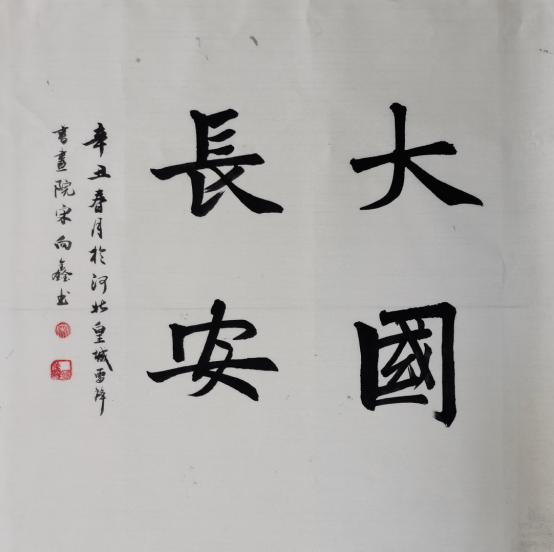 大國
長安
辛丑春月於河北皇城雪譁
書畫院宋向鑫书